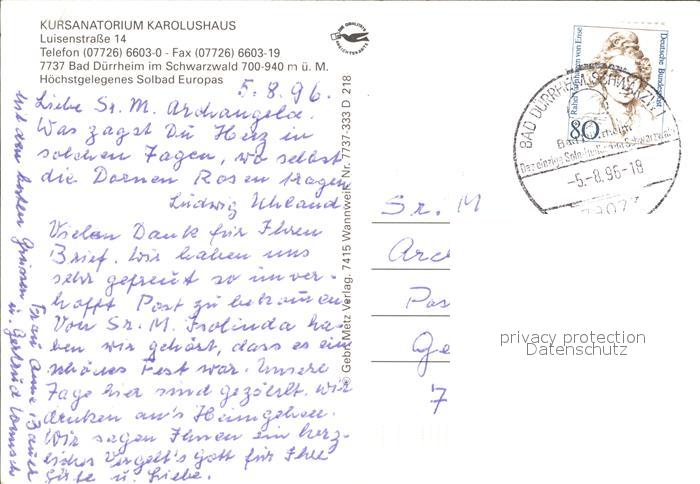 KURSANATORIUM KAROLUSHAUS
Luisenstraße 14
Telefon (07726) 6603-0 - Fax (07726) 6603-19
7737 Bad Dürrheim im Schwarzwald 700-940 m ü. M.
Höchstgelegenes Solbad Europas
5.8.96.
Liebe Sr. M. Archangela.
Was zagst Du Herz in
solchen Tagen, wo selbst
die Dornen Rosen tragen
Ludwig Uhland
Vielen Dank für Ihren
Brief. Wir haben uns
sehr gefreut so unver-
hofft Post zu bekommen.
Von Sr. M. Isolinda ha-
ben wir gehört, dass es ein
schönes Fest war. Unsere
Tage hier sind gezählt. Wir
denken an's Heimgehen.
Wir sagen Ihnen ein herz-
liches Vergelt's Gott für Ihre
Güte u. Liebe.
Mit den besten Grüssen Frau Anne Bauer
u. Gertrud
Gebr. Metz Verlag. 7415 Wannweil. Nr. 7737-333 D 218
Sr. M
Arc
Pos
Ge
7
Rahel Varnhagen von Ense
Deutsche Bundespost
80
BAD DÜRRHEIM, SCHWARZW 1
Bad Dürrheim
-5.-8.96-18
78073
privacy protection
Datenschutz